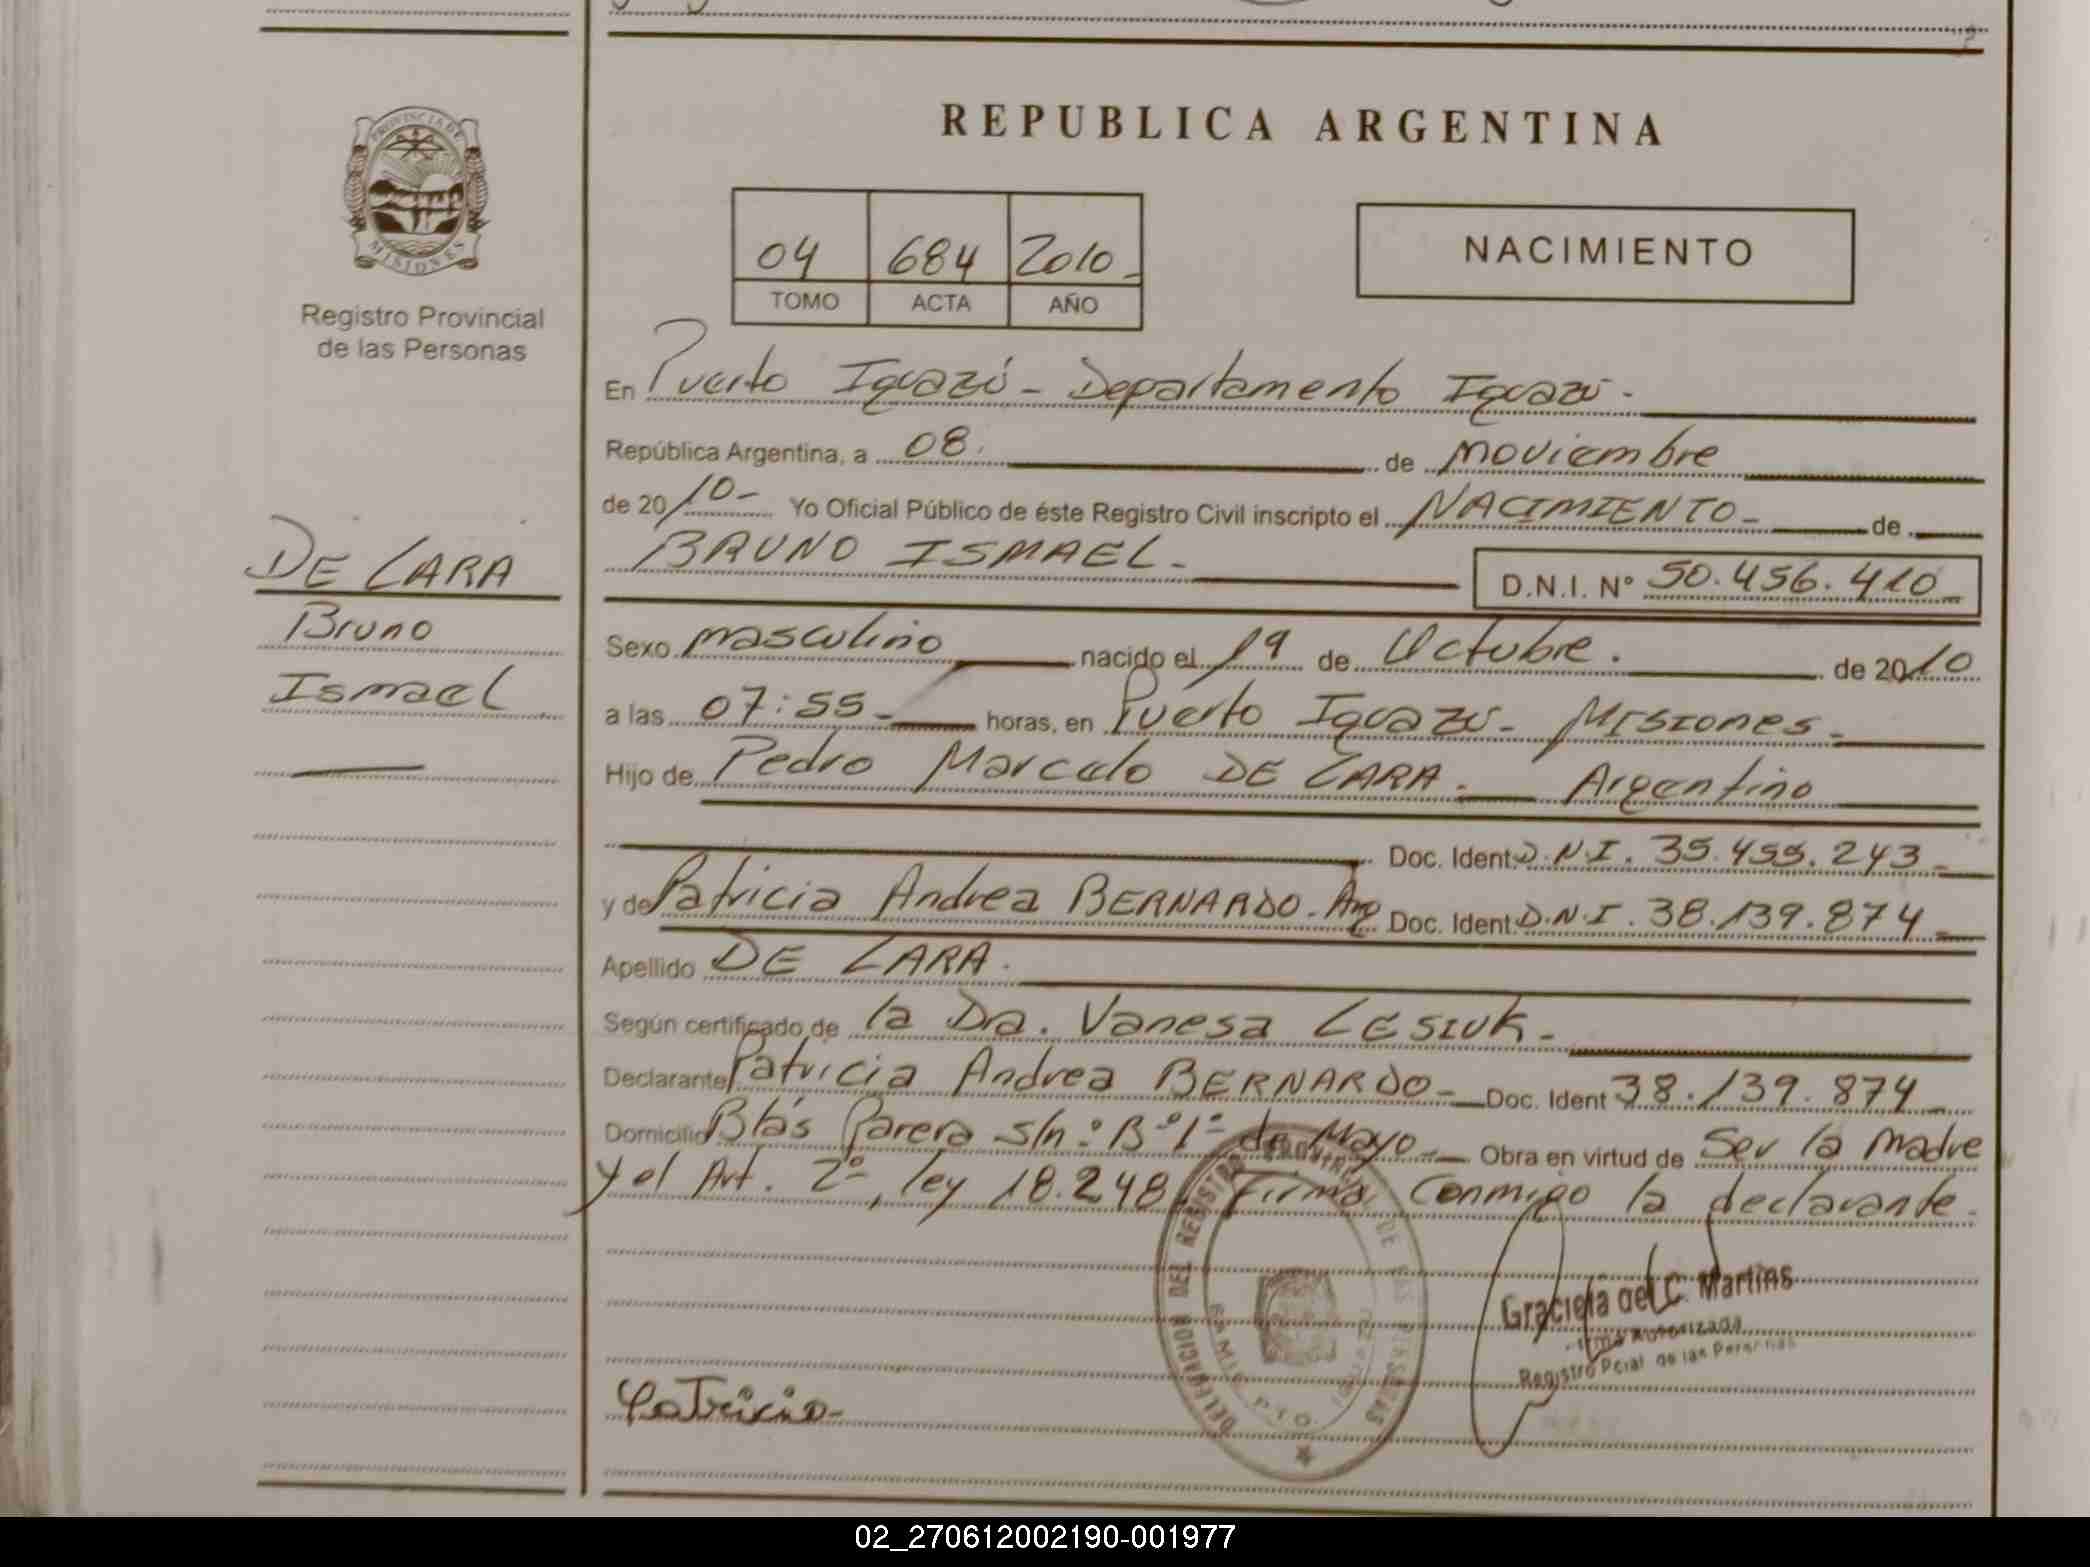 PROVINCIA DE
MISIONES
Registro Provincial
de las Personas
DE LARA
Bruno
Ismael
REPUBLICA ARGENTINA
04 684 2010
TOMO ACTA AÑO
NACIMIENTO
En Puerto Iguazú - Departamento Iguazú.
República Argentina, a 08. de noviembre
de 20 10- Yo Oficial Público de éste Registro Civil inscripto el NACIMIENTO - de
BRUNO ISMAEL. D.N.I. Nº 50.456.410
Sexo masculino nacido el 19 de Octubre. de 20 10
a las 07:55 horas, en Puerto Iguazú - Misiones.
Hijo de Pedro Marcelo DE LARA. Argentino
Doc. Ident. D.N.I. 35.455.243
y de Patricia Andrea BERNARDO. Arg Doc. Ident. D.N.I. 38.139.874
Apellido DE LARA.
Según certificado de la Dra. Vanesa LESIUK.
Declarante Patricia Andrea BERNARDO - Doc. Ident 38.139.874
Domicilio Blás Parera s/n.º Bº 1º de Mayo - Obra en virtud de Ser la madre
y el Art. 2º, ley 18.248. Firma Conmigo la declarante.
DELEGACION DEL REGISTRO PROVINCIAL DE LAS PERSONAS
Graciela del C. Martins
Firma Autorizada
Registro Pcial de las Personas
Patricia-
02_270612002190-001977